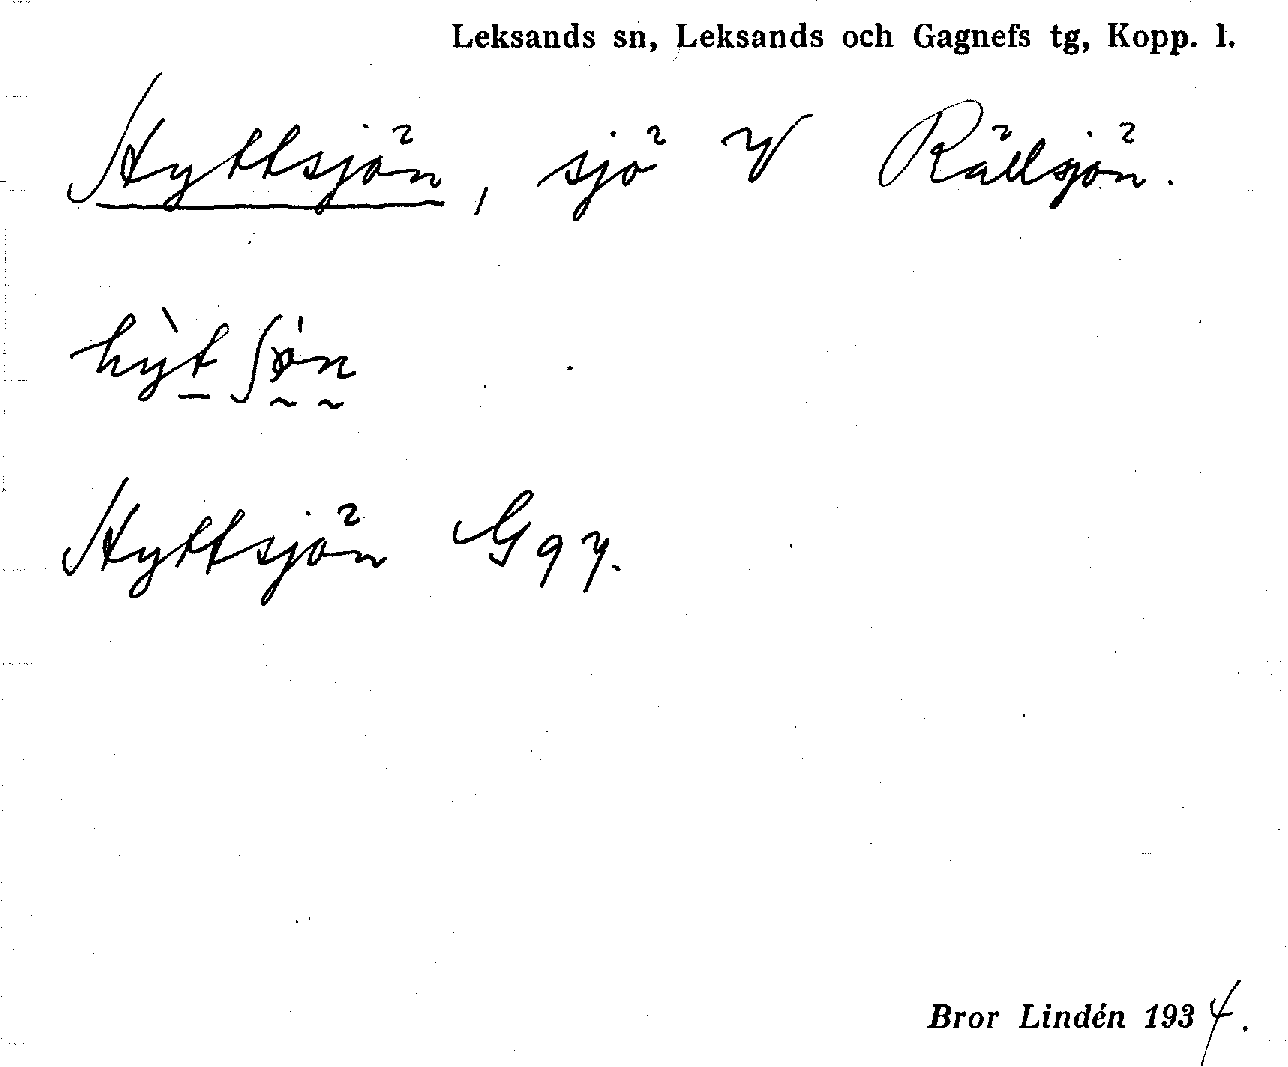 Leksands sn, Leksands och Gagnefs tg, Kopp. l.
Hyttsjön, sjö V Rällsjön.
hỳt ʃö́n
Hyttsjön G 97.
Bror Lindén 1934.